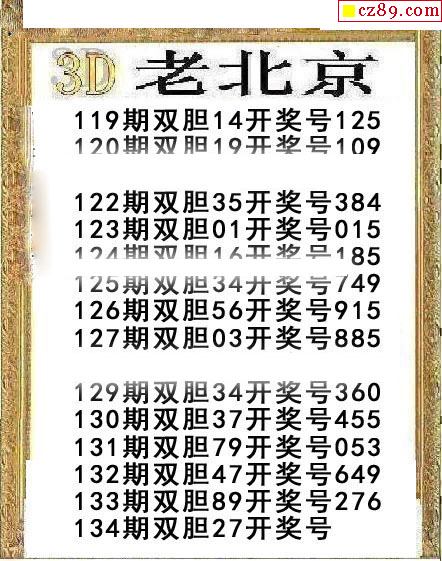 cz89.com
3D 老北京
119期双胆14开奖号125
120期双胆19开奖号109
122期双胆35开奖号384
123期双胆01开奖号015
124期双胆16开奖号185
125期双胆34开奖号749
126期双胆56开奖号915
127期双胆03开奖号885
129期双胆34开奖号360
130期双胆37开奖号455
131期双胆79开奖号053
132期双胆47开奖号649
133期双胆89开奖号276
134期双胆27开奖号